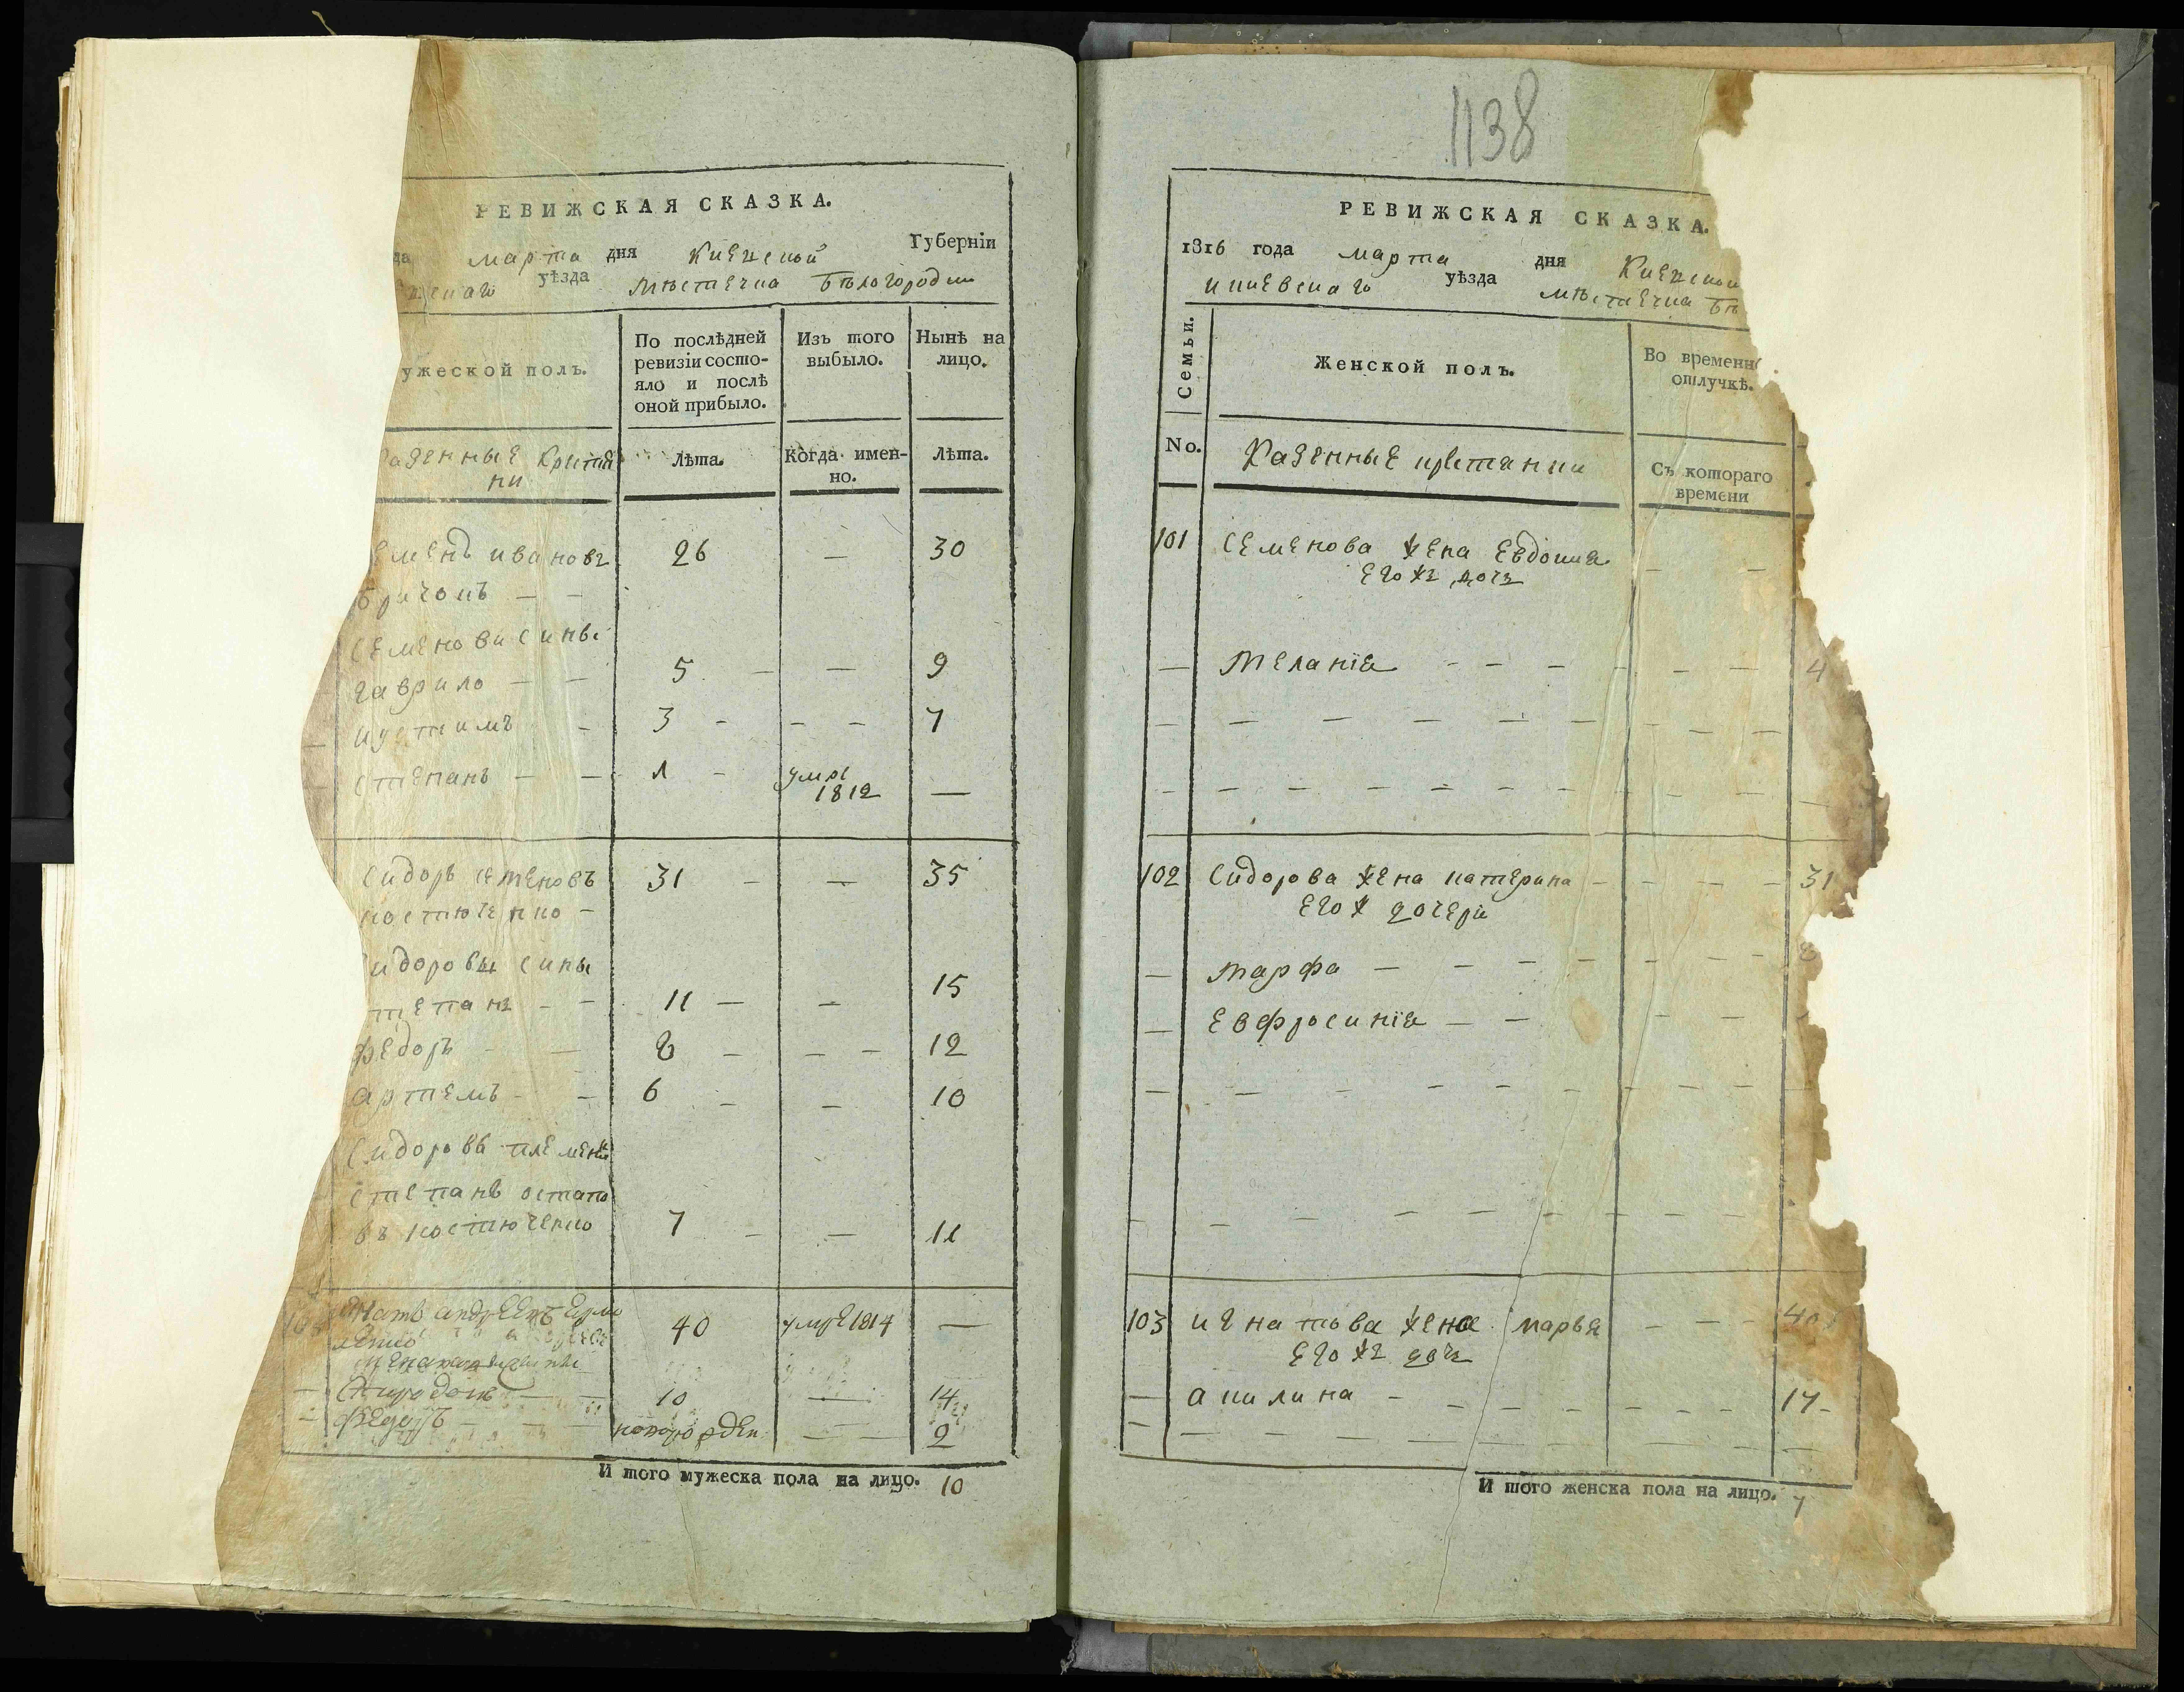 РЕВИЖСКАЯ СКАЗКА.
да марта дня Киевской Губерніи
уѣзда мѣстечка Бѣлогородки
ужеской полъ.
По послѣдней
ревизіи состо-
яло и послѣ
оной прибыло.
Изъ того
выбыло.
Нынѣ на
лицо.
Лѣта.
Когда имен-
но.
Лѣта.
казенные Кристя
ни
еменъ ивановъ 26 — 30
Семенови сины
гаврило — — 5 — — 9
иустимъ — 3 - — — 7
степанъ — — 1 - умре
1812 —
Сидоръ семеновъ 31 — — 35
костюченко —
идоровы сины
тепанъ — — 11 — — 15
федоръ — — 8 — — — 12
артемъ — — 6 — — 10
Сидорова племени
степанъ остапо
въ костюченко 7 — — 11
игнатъ андреевъ 40 умре 1814 —
— Спиридонъ — 10 — 14
— федоръ — — новорожден — — 2
И того мужеска пола на лицо. 10
1138
РЕВИЖСКАЯ СКАЗКА.
1816 года марта дня Киевской
киевскаго уѣзда мѣстечка Бѣ
Семьи.
Женской полъ.
Во временн
отлучкѣ.
No.
Казенные кристянки
Съ котораго
времени
101 Семенова жена Евдокия — —
его жъ дочъ
— Мелания - - - — - — 4
102 Сидорова жена катерина — — — — 31
его ж дочери
— Марфа — — — — — — —
— Евфросиния — — — —
103 игнатова жена марья — — — 40
его жъ дочъ
— акилина — — — — — — — 17 -
И того женска пола на лицо. 7